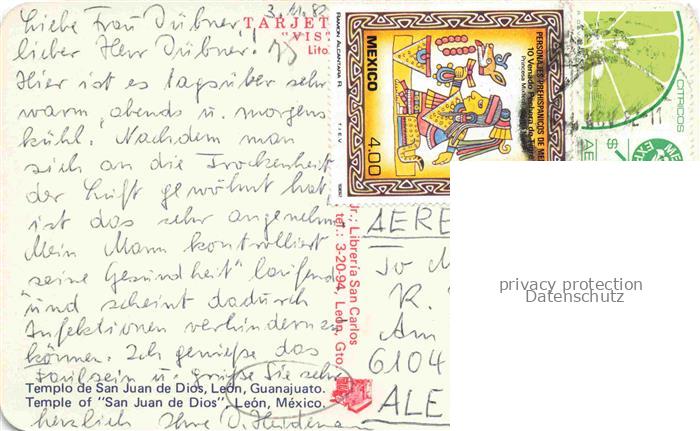 3.11.82
Liebe Frau Dübner,
lieber Herr Dübner!
Hier ist es tagsüber sehr
warm, abends u. morgens
kühl. Nachdem man
sich an die Trockenheit
der Luft gewöhnt hat,
ist das sehr angenehm.
Mein Mann kontrolliert
"seine Gesundheit" laufend
und scheint dadurch
Infektionen verhindern zu
können. Ich genieße das
Faulsein u. grüße Sie sehr
herzlich Ihre
TARJET
"VIST
Lito.
Templo de San Juan de Dios, León, Guanajuato.
Temple of "San Juan de Dios", León, México.
Jr.; Librería San Carlos
tel.: 3-20-94, León, Gto.
RAMON ALCANTARA R.
MEXICO
4.00
T I E V
1982
PERSONAJES PREHISPANICOS DE ME
10 Venado
CITRICOS
AERE
R.
Am
6104
ALE
privacy protection
Datenschutz